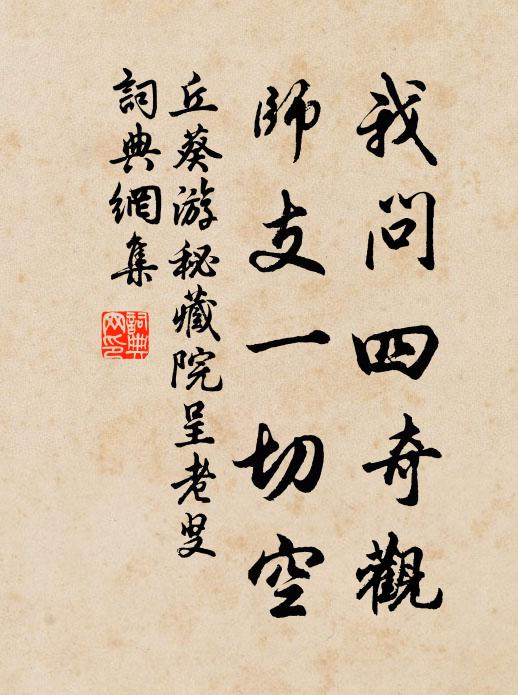 我問四奇觀
師支一切空
丘葵游秘藏院呈老叟
詞典網集
詞典網印